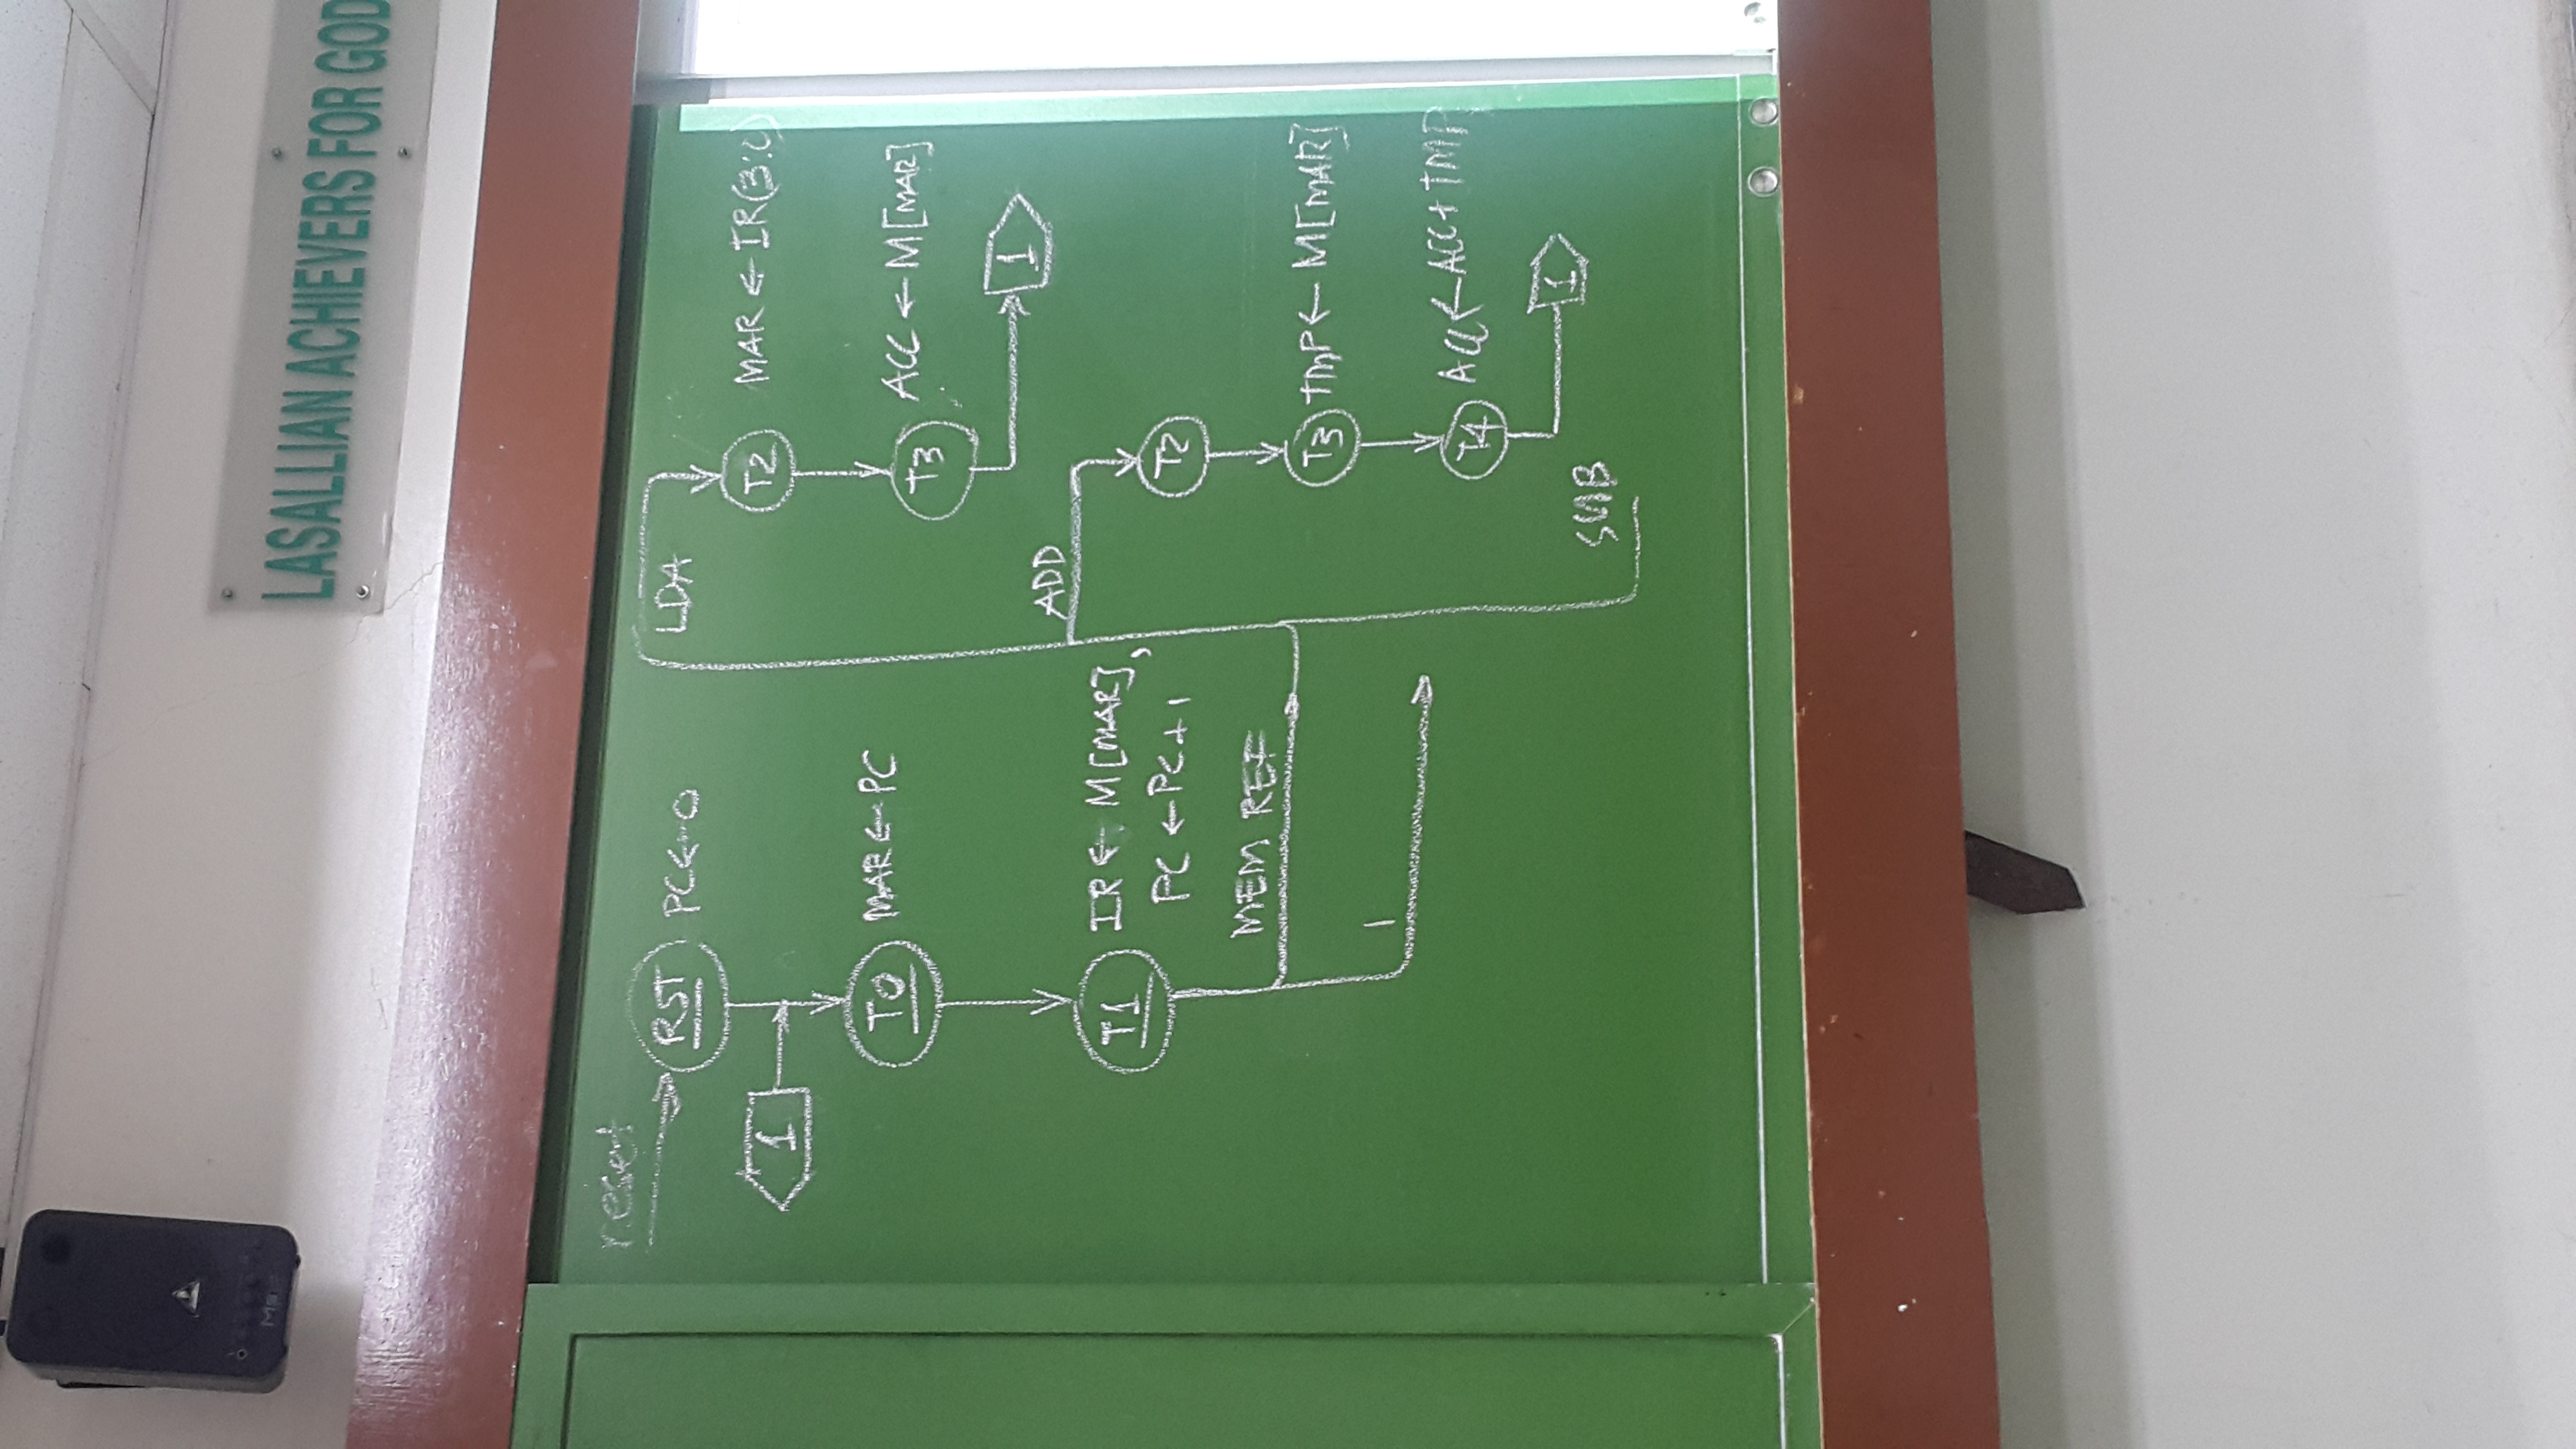 LASALLIAN ACHIEVERS FOR GOD
reset
RST PC←0
1
T0 MAR←PC
T1 IR← M[MAR],
PC←PC+1
MEM REF
1
LDA
T2 MAR ← IR(3:0)
T3 ACC ← M[MAR]
1
ADD
T2
T3 TMP← M[MAR]
T4 ACC←ACC+TMP
1
SUB